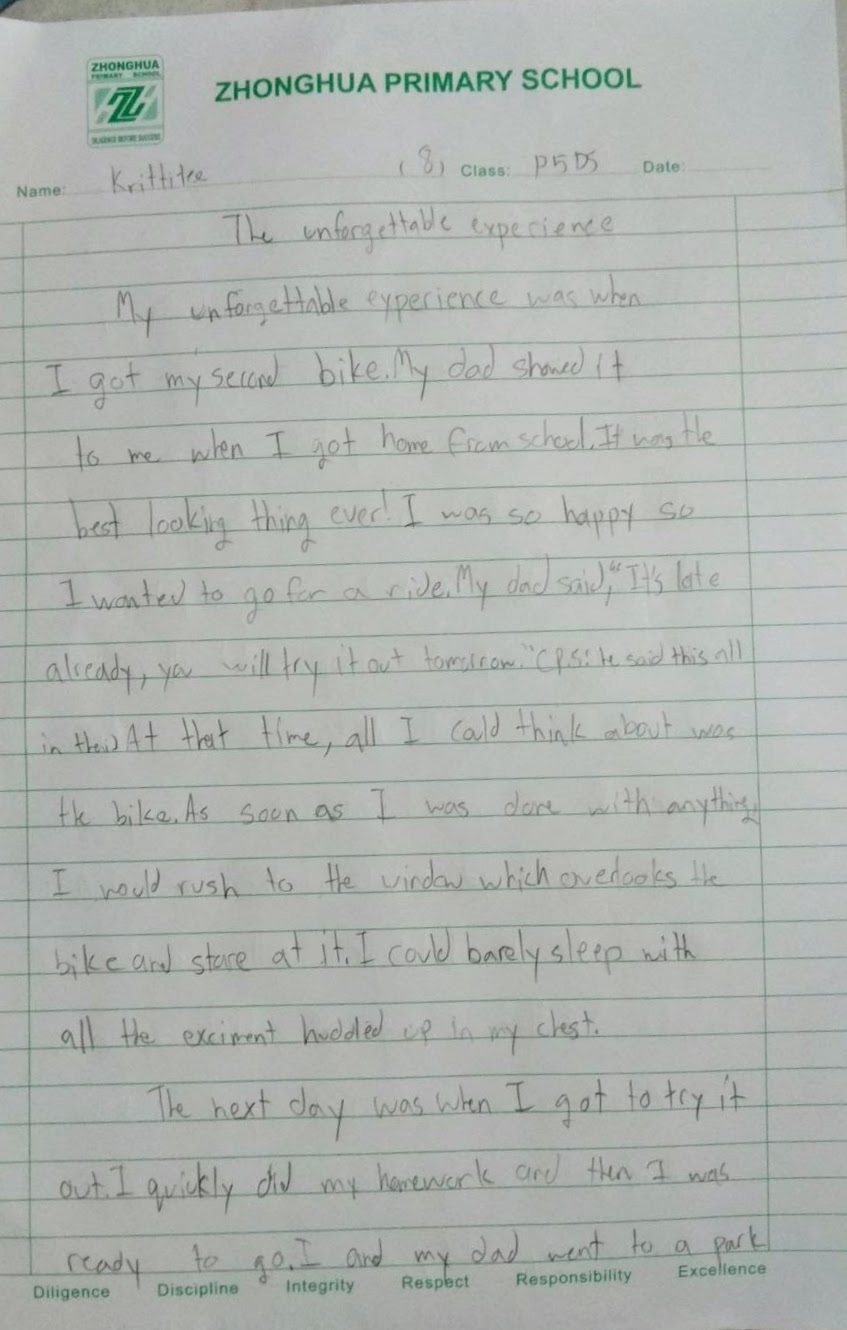 ZHONGHUA
PRIMARY SCHOOL
ZHONGHUA PRIMARY SCHOOL
Name: Krittitee (8) Class: P5D5 Date:
The unforgettable experience
My unforgettable experience was when
I got my second bike. My dad showed it
to me when I got home from school. It was the
best looking thing ever! I was so happy so
I wanted to go for a ride. My dad said, "It's late
already, you will try it out tomorrow." (P.S: he said this all
in thai) At that time, all I could think about was
the bike. As soon as I was done with anything,
I would rush to the window which overlooks the
bike and stare at it. I could barely sleep with
all the exciment huddled up in my chest.
The next day was when I got to try it
out. I quickly did my homework and then I was
ready to go. I and my dad went to a park
Diligence Discipline Integrity Respect Responsibility Excellence